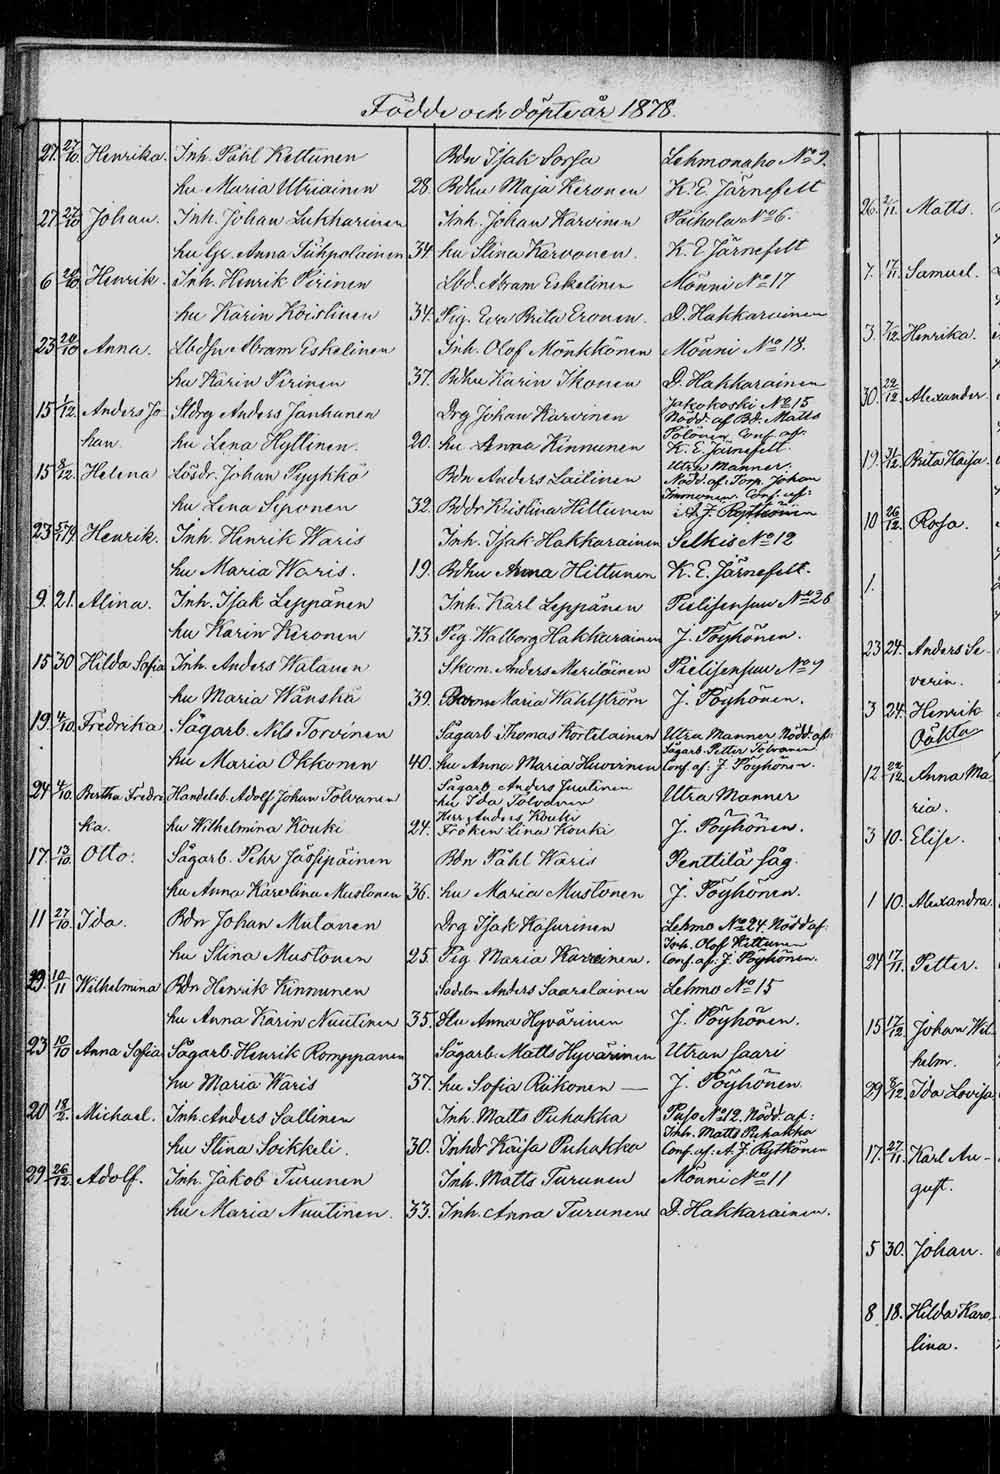 Födde och döpte år 1878.
27. 27/10. Henrika. Inh. Påhl Kettunen Bdn Isak Sorsa Lehmonaho No 9.
hu Maria Utriainen 28. Bdhu Maja Keronen K. E. Järnefelt
27. 27/10 Johan. Inh. Johan Lukkarinen Inh. Johan Karvinen Paihola No 6.
hu Gr. Anna Tuhpolainen 34. hu Stina Karvonen. K. E Järnefelt
6 20/10 Henrik. Inh. Henrik Pirinen Lbd. Abram Eskelinen Mönni No 17
hu Karin Koistinen 34. Pig. Eva Brita Eronen. D. Hakkarainen
23 20/10 Anna. Lbdsn Abram Eskelinen Inh. Olof Mönkkönen Mönni No 18.
hu Karin Pirinen 37. Bdhu Karin Ikonen D. Hakkarainen
15 1/12. Anders Jo Sldrg Anders Janhunen Drg Johan Karvinen Jakokoski No 15
Nödd. af Bd. Matts
han. hu Lena Hyttinen. 20. hu Anna Kinnunen Pölönen Conf. af.
K. E. Järnefelt.
15 8/12. Helena Lösdr. Johan Pyykkö Bdn Anders Laitinen Utra Manner.
Nödd. af. Torp. Johan
hu Lena Seponen 32. Bddr Kristina Hiltunen Immonen. Conf. af:
A. J. Rytkönen
23 5/1 79. Henrik. Inh. Henrik Waris Inh. Isak Hakkarainen Selkis No 12
hu Maria Waris. 19. Bdhu Anna Hiltunen K. E. Järnefelt.
9. 21. Alina. Inh. Isak Leppänen Inh. Karl Leppänen Pielisensuu No 26
hu Karin Keronen 33. Pig. Walborg Hakkarainen J. Pöyhönen.
15 30 Hilda Sofia Inh. Anders Watanen Skom. Anders Meriläinen Pielisensuu No 9
hu Maria Wänskä 39. Barnm Maria Wahlström J. Pöyhönen.
19. 4/10. Fredrika. Sågarb. Nils Torvinen Sågarb Thomas Kortelainen Utra Manner Nödd. af:
Sågarb. Petter Tolvanen
hu Maria Okkonen 40. hu Anna Maria Huovinen Conf. af: J. Pöyhönen.
24 4/10. Bertha Fredri Handelsb. Adolf Johan Tolvanen Sågarb. Anders Juutinen
hu Ida Tolvanen Utra Manner
ka. hu Wilhelmina Kouki 24. Herr Anders Kouki
Fröken Lina Kouki J. Pöyhönen.
17. 13/10. Otto. Sågarb. Pehr Jässipäinen Bdn Påhl Waris Penttilä såg.
hu Anna Karolina Mustonen 36. hu Maria Mustonen J. Pöyhönen.
11 27/10. Ida. Bdn Johan Mutanen Drg Isak Kasurinen Lehmo No 24. Nödd af:
Inh. Olof Kettunen
hu Stina Mustonen 25. Pig. Maria Karvinen. Conf. af: J. Pöyhönen.
29. 10/11 Wilhelmina Bdn Henrik Kinnunen Sadelm Anders Saarelainen Lehmo No 15
hu Anna Karin Nuutinen 35. Hu Anna Hyvärinen J. Pöyhönen.
23 10/10 Anna Sofia Sågarb. Henrik Romppanen Sågarb. Matts Hyvärinen Utran saari
hu Maria Waris 37. hu Sofia Riikonen — J. Pöyhönen
20 18/2. Michael. Inh. Anders Sallinen Inh. Matts Puhakka Puso No 12. Nödd. af:
Inh. Matts Puhakka
hu Stina Soikkeli. 30. Inhdr Kaisa Puhakka Conf. af: A. J. Rytkönen
29. 26/12. Adolf. Inh. Jakob Turunen Inh. Matts Turunen Mönni No 11
hu Maria Nuutinen. 33. Inh. Anna Turunen D. Hakkarainen.
26. 2/11. Matts.
7. 17/11. Samuel.
3. 7/12. Henrika.
30. 29/12. Alexander.
19. 31/12. Brita Kaisa.
10 26/12. Rosa.
1.
23 24. Anders Se-
verin.
3 24. Henrik
Oäkta
12 22/12. Anna Ma
ria.
3 10. Elise.
1 10. Alexandra.
24 17/11. Petter.
15 17/12. Johan Wil-
helm.
29 8/12. Ida Lovisa
17. 27/11. Karl Au-
gust.
5 30. Johan.
8 18. Hilda Karo-
lina.